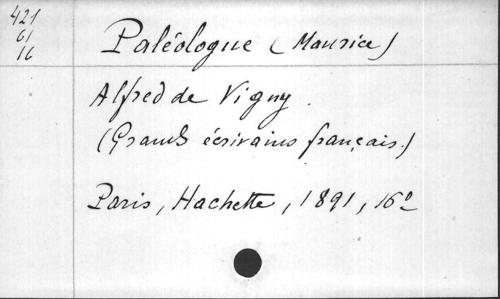 421
61
16
Paléologue (Maurice)
Alfred de Vigny.
(Grands écrivains français.)
Paris, Hachette, 1891, 16º